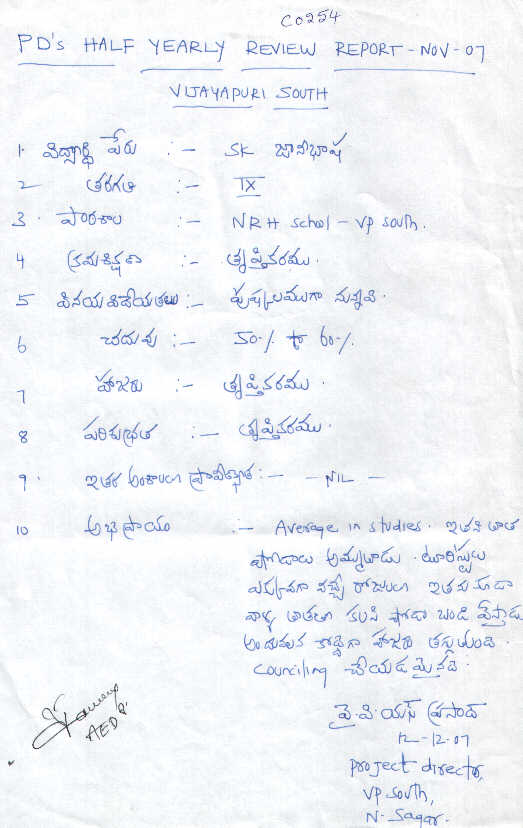 C0254
PD's HALF YEARLY REVIEW REPORT - NOV - 07
VIJAYAPURI SOUTH
1. విద్యార్థి పేరు :- SK జానీభాష
2 తరగతి :- IX
3. పాఠశాల :- NRH school - VP South.
4 క్రమశిక్షణ :- తృప్తికరము.
5 వినయవిధేయతలు :- పుష్కలముగా నున్నవి.
6 చదువు :- 50% to 60%.
7 హాజరు :- తృప్తికరము.
8 పరిశుభ్రత :- తృప్తికరము.
9. ఇతర అంశాలలో ప్రావీణ్యత :- - NIL -
10 అభిప్రాయం :- Average in studies. ఇతని తాత
షోడాలు అమ్ముతాడు. టూరిస్టులు
ఎక్కువగా వచ్చే రోజులలో ఇతను కూడా
వాళ్ళ తాతతో కలసి షోడా బండి వేస్తాడు
అందువలన కొద్దిగా హాజరు తగ్గుతుంది.
Counciling చేయడమైనది.
వై. పి. యస్ ప్రసాద్
12-12-07
Project director,
VP South,
N. Sagar.
AEDP